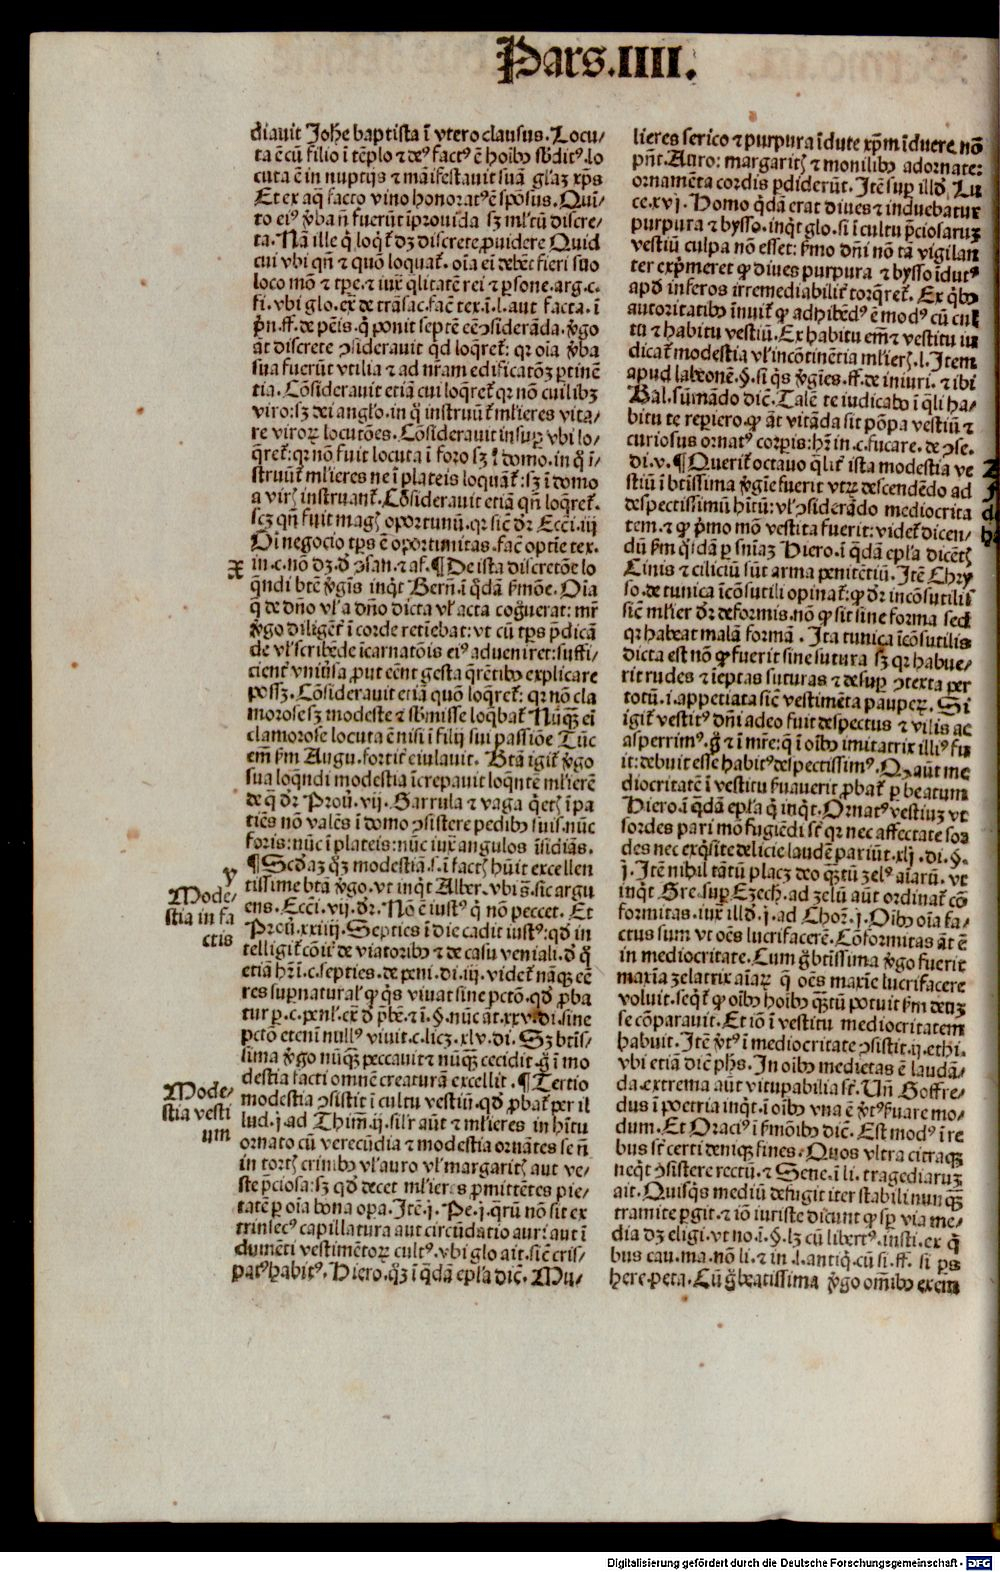 Pars.IIII.
diauit Johe baptista ī vtero clausus. Locu/
ta ē cū filio ī tēplo ⁊ deꝰ factꝰ ē hoībꝫ sb̄ditꝰ. lo
cuta ē in nuptijs ⁊ māifestauit suā gl̄aꝫ xp̄s
Et ex aq̄ facto vino honoratꝰ ē spōsus. Qui/
to eiꝰ v̄ba n̄ fuerūt īprouida sꝫ ml̓tū discre/
ta. Nā ille q̄ loq̄t̓ dꝫ discrete ꝓuidere Quid
cui vbi qn̄ ⁊ quō loquat̓. oīa eī debēt fieri suo
loco mō ⁊ tꝑe. ⁊ iux̄ q̄litatē rei ⁊ ꝑsone. arg. c.
fi. vbi glo. ex̄ de trāsac. facē tex. ī. l. aut facta. ī
p̄n. ff. de pēis. q̄ ponit septē cē ꝯsiderāda. v̄go
āt discrete ꝯsiderauit qd̄ loq̄ret̓: qꝛ oīa v̄ba
sua fuerūt vtilia ⁊ ad nr̄am edificatōꝫ ꝑtinē
tia. Cōsiderauit etiā cui loq̄ret̓ qꝛ nō cuilibꝫ
viro: sꝫ dei anglo. in q̄ instruūt̓ ml̓ieres vita/
re viroꝝ locutōes. Cōsiderauit insuꝑ vbi lo/
q̄ret̓: qꝛ nō fuit locuta ī foro sꝫ ī domo. in q̄ ī/
struūt̓ ml̓ieres ne ī plateis loquāt̓: sꝫ ī domo
a viris instruant̓. Cōsiderauit etiā qn̄ loq̄ret̓.
scꝫ qn̄ fuit magis oportunū. qꝛ sic dr̄ Ecc̄i. iij
Oī negocio tp̄s ē oportunitas. facē optie tex.
in. c. nō dꝫ. d̄ ꝯsan. ⁊ af. ¶ De ista discretōe lo
q̄ndi btē v̄gīs inq̄t Bern̄. ī q̄dā s̄mōe. Oīa
q̄ de dn̄o vl̓ a dn̄o dicta vl̓ acta coḡuerat: mr̄
v̄go diligēt̓ ī corde retiēbat: vt cū tp̄s p̄dicā
de vl̓ scribēde īcarnatōis eiꝰ adueniret: suffi/
cient̓ vniūsa ꝓut eēnt gesta q̄rētibꝫ explicare
possꝫ. Cōsiderauit etiā quō loq̄ret̓: qꝛ nō cla
morose sꝫ modeste ⁊ sb̄misse loq̄bat̓ Nūq̄ꝫ eī
clamorose locuta ē nisi ī filij sui passiōe Tūc
em̄ s̄m Augu. fortit̓ eiulauit. Btā igit̓ v̄go
sua loq̄ndi modestia īcrepauit loq̄ntē ml̓ierē
de q̄ dr̄ Prou̓. vij. Garrula ⁊ vaga q̄etis īpa
tiēs nō valēs ī domo ꝯsistere pedibꝫ suis. nūc
foris: nūc ī plateis: nūc iux̄ angulos īsidiās.
¶ Scd̄aꝫ q̄ꝫ modestiā. s. ī factis hūit excellen
tissime btā v̄go. vt inq̄t Alber. vbi s̄. sic argu
ens. Ecc̄i. vij. dr̄. Nō ē iustꝰ q̄ nō peccet. Et
Prou̓. xxiiij. Septies ī die cadit iustꝰ: qd̄ in
telligit̓ cōit̓ de viatoribꝫ ⁊ de casu veniali. d̄ q̄
etiā hr̄ ī. c. septies. de peni. di. iij. videt̓ nāqꝫ eē
res suꝑnatural̓ ꝙ q̄s viuat sine pctō. qd̄ ꝓba
tur ꝑ. c. penl̓. ex̄ d̄ p̄bē. ⁊ ī. §. nūc āt. xxv. di. sine
pctō etenī nullꝰ viuit. c. licꝫ. xlv. di. Sꝫ btīs/
sima v̄go nūq̄ꝫ peccauit ⁊ nūq̄ꝫ cecidit. g̊ ī mo
destia facti omnē creaturā excellit. ¶ Tertio
modestia ꝯsistit ī cultu vestiū. qd̄ ꝓbat̓ per il
lud. j. ad Thim̄. ij. sil̓r aūt ⁊ ml̓ieres in hītu
ornato cū verecūdia ⁊ modestia ornātes se n̄
in tortis crinibꝫ vl̓ auro vl̓ margaritis aut ve/
ste p̄ciosa: sꝫ qd̄ decet ml̓ieres ꝓmittētes pie/
tatē ꝑ oīa bona oꝑa. Itē. j. Pe. j. q̄rū nō sit ex
trinsecꝰ capillatura aut circūdatio auri aut ī
dumēti vestimētoꝝ cultꝰ. vbi glo ait. sic̄ cris/
patꝰ habitꝰ. Hiero. q̄ꝫ ī q̄dā epl̓a dic̄. Mu/
x
y
Mode/
stia in fa
ctis
Mode/
stia vesti
um
lieres serico ⁊ purpura īdute xp̄m īduere nō
pn̄t. Auro: margaritis ⁊ monilibꝫ adornate:
ornamēta cordis ꝑdiderūt. Itē suꝑ illd̄. Lu
ce. xvj. Homo q̄dā erat diues ⁊ induebatur
purpura ⁊ bysso. inq̄t glo. si ī cultu p̄ciosaruꝫ
vestiū culpa nō esset: s̄mo dn̄i nō tā vigilan
ter exp̄meret ꝙ diues purpura ⁊ bysso īdutꝰ
apd̄ inferos irremediabilit̓ torq̄ret̓. Ex q̄bꝫ
autoritatibꝫ īnuit̓ ꝙ adhibēdꝰ ē modꝰ cū cul
tu ⁊ habitu vestiū. Ex habitu em̄ ⁊ vestitu iu
dicat̓ modestia vl̓ incōtinētia ml̓ieris. l. Item
apud labeonē. §. si q̄s v̄gīes. ff. de iniuri. ⁊ ibi
Bal. sumādo dic̄. Talē te iudicabo ī q̄li ha/
bitu te reꝑiero. ꝙ āt vitāda sit pōpa vestiū ⁊
curiosus ornatꝰ corꝑis: hr̄ in. c. fucare. de ꝯse.
di. v. ¶ Querit̓ octauo q̄lit̓ ista modestia ve
stiū ī btīssima v̄gīe fuerit vtꝝ descendēdo ad
despectissimū hītū: vl̓ ꝯsiderādo mediocrita
tem. ⁊ ꝙ p̄mo mō vestita fuerit: videt̓ dicen/
dū s̄m q̄dā ꝑ sn̄iaꝫ Hiero. ī q̄dā epl̓a dicētis
Cinis ⁊ ciliciū sūt arma penitētiū. Itē Chry
so. de tunica īcōsutili opinat̓: ꝙ dr̄ incōsutilis
sic̄ ml̓ier dr̄ deformis. nō ꝙ sit sine forma sed
qꝛ habeat malā formā. Ita tunica īcōsutilis
dicta est nō ꝙ fuerit sine sutura sꝫ qꝛ habue/
rit rudes ⁊ īeptas suturas ⁊ desuꝑ ꝯtexta per
totū. i. appetiata sic̄ vestimēta pauperꝝ. Si
igit̓ vestitꝰ dn̄i adeo fuit despectus ⁊ vilis ac
asperrimꝰ. g̊ ⁊ ī mr̄e: q̄ ī oībꝫ imitatrix illiꝰ fu
it: debuit esse habitꝰ despectissimꝰ. Qꝫ aūt me
diocritatē ī vestitu s̄uauerit ꝓbat̓ ꝑ beatum
Hiero. ī q̄dā epl̓a q̄ inq̄t. Ornatꝰ vestiuꝫ vt
sordes pari mō fugiēdi sт̄ qꝛ nec affectate sor
des nec exq̄site delicie laudē pariūt. xlj. di. §.
j. Itē nihil tātū placꝫ deo q̄ꝫtū zelꝰ aīarū. vt
inq̄t Gre. suꝑ Ezech. ad zelū aūt ordinat̓ cō
formitas. iux̄ illd̄. j. ad Chor̄. j. Oībꝫ oīa fa/
ctus sum vt oēs lucrifacerē. Cōformitas āt ē
in mediocritate. Cum g̊ btīssima v̄go fuerit
maxīa zelatrix aīarꝝ q̄ oēs maxīe lucrifacere
voluit. seq̄t̓ ꝙ oībꝫ hoībꝫ q̄ꝫtū potuit s̄m deuꝫ
se cōparauit. Et iō ī vestitu mediocritatem
habuit. Itē v̄tꝰ ī mediocritate ꝯsistit. ij. ethi.
vbi etiā dic̄ ph̄s. In oībꝫ medietas ē laudā/
da. extrema aūt vituꝑabilia sт̄. Un̄ Goffre/
dus ī poetria inq̄t. ī oībꝫ vna ē v̄tꝰ s̄uare mo/
dum. Et Oraciꝰ ī s̄mōibꝫ dic̄. Est modꝰ ī re
bus sт̄ certi deniqꝫ fines. Quos vltra citraqꝫ
neq̄t ꝯsistere rectū. ⁊ Sene. ī li. tragediaruꝫ
ait. Quisq̄s mediū defugit iter stabili nunq̄ꝫ
tramite ꝑgit. ⁊ iō iuriste dicunt ꝙ sꝑ via me/
dia dꝫ eligi. vt no. ī. §. lꝫ cū libertꝰ. insti. ex q̄
bus cau. ma. nō li. ⁊ in. l. antiq̄. cū si. ff. si ꝑs
here. peta. Cū g̊ beatissima v̄go omībꝫ exem
Digitalisierung gefördert durch die Deutsche Forschungsgemeinschaft - DFG